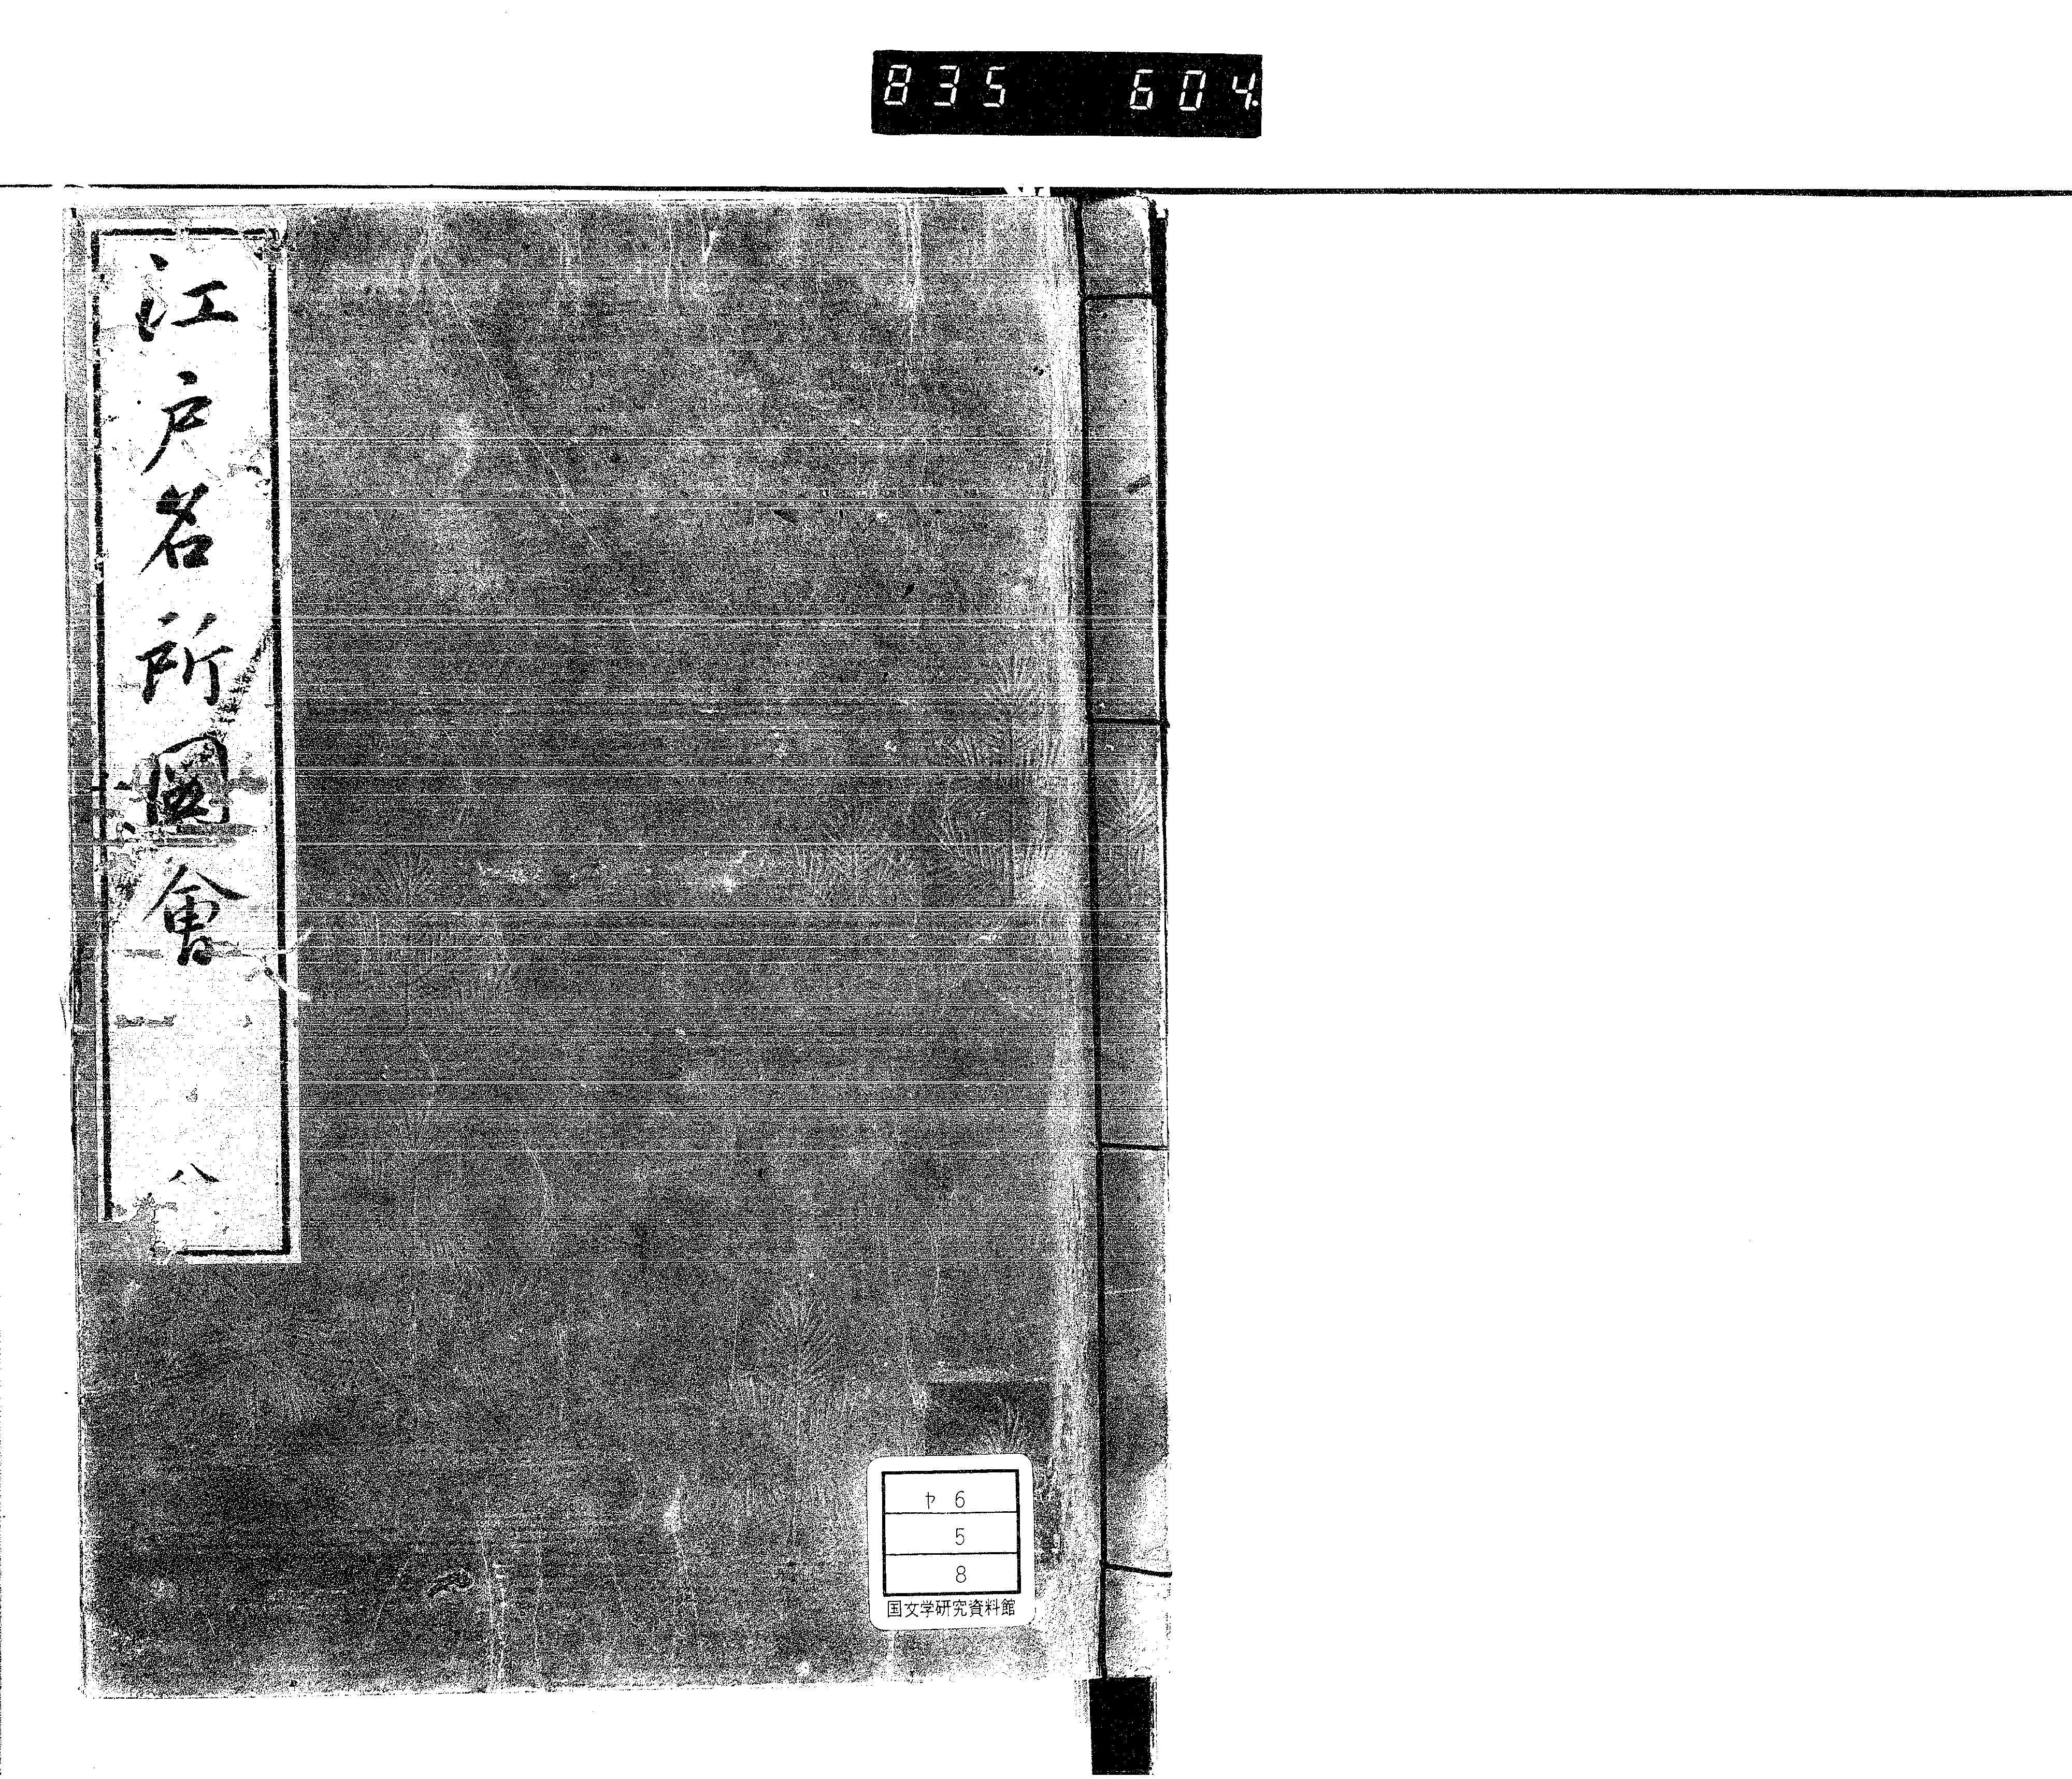 835 604.
江戸名所圖會
八
ヤ 6
5
8
国文学研究資料館